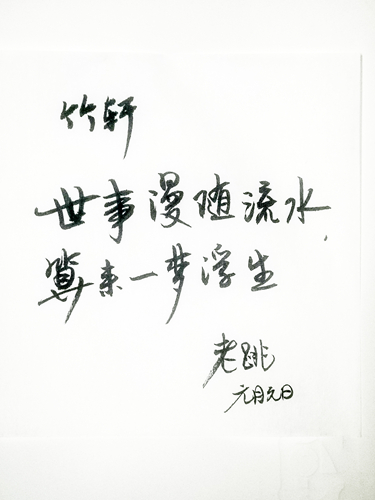 竹轩
世事漫随流水，
算来一梦浮生
老跳
元月元日